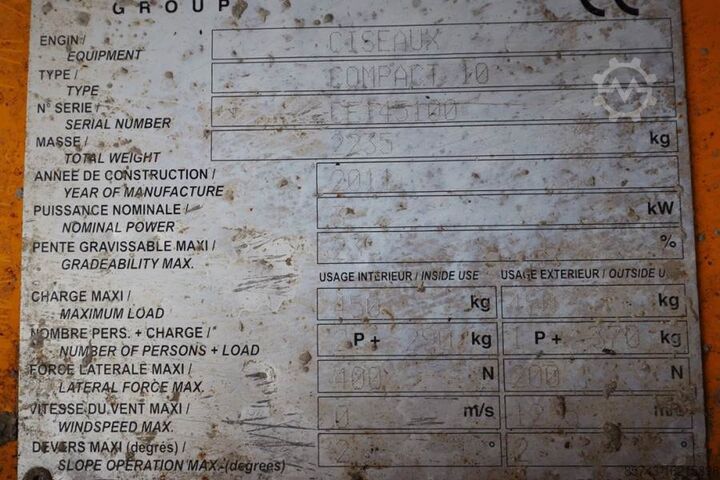 GROUP CE
ENGIN / EQUIPMENT CISEAUX
TYPE / TYPE COMPACT 10
N° SERIE / SERIAL NUMBER CE145100
MASSE / TOTAL WEIGHT 2235 kg
ANNEE DE CONSTRUCTION / YEAR OF MANUFACTURE 2011
PUISSANCE NOMINALE / NOMINAL POWER kW
PENTE GRAVISSABLE MAXI / GRADEABILITY MAX. %
USAGE INTERIEUR / INSIDE USE USAGE EXTERIEUR / OUTSIDE U
CHARGE MAXI / MAXIMUM LOAD 450 kg 450 kg
NOMBRE PERS. + CHARGE / NUMBER OF PERSONS + LOAD P + 290 kg 1 P + 370 kg
FORCE LATERALE MAXI / LATERAL FORCE MAX. 400 N 200 N
VITESSE DU VENT MAXI / WINDSPEED MAX. 0 m/s 12.5 m/s
DEVERS MAXI (degrés) / SLOPE OPERATION MAX. (degrees) 2 ° 2 °